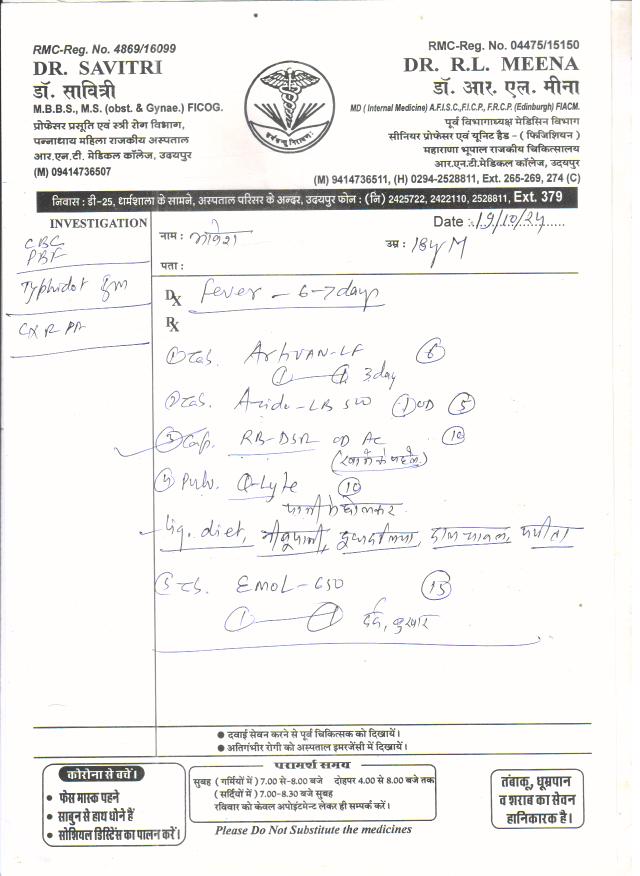 RMC-Reg. No. 4869/16099
DR. SAVITRI
डॉ. सावित्री
M.B.B.S., M.S. (obst. & Gynae.) FICOG.
प्रोफेसर प्रसूति एवं स्त्री रोग विभाग,
पन्नाधाय महिला राजकीय अस्पताल
आर.एन.टी. मेडिकल कॉलेज, उदयपुर
(M) 09414736507
RMC-Reg. No. 04475/15150
DR. R.L. MEENA
डॉ. आर. एल. मीना
MD ( Internal Medicine) A.F.I.S.C.,F.I.C.P., F.R.C.P. (Edinburgh) FIACM.
पूर्व विभागाध्यक्ष मेडिसिन विभाग
सीनियर प्रोफेसर एवं यूनिट हैड - ( फिजिशियन )
महाराणा भूपाल राजकीय चिकित्सालय
आर.एन.टी.मेडिकल कॉलेज, उदयपुर
(M) 9414736511, (H) 0294-2528811, Ext. 265-269, 274 (C)
निवास : डी-25, धर्मशाला के सामने, अस्पताल परिसर के अन्दर, उदयपुर फोन : (नि) 2425722, 2422110, 2528811, Ext. 379
INVESTIGATION
CBC
PBF
Typhidot IgM
CXR PA
नाम :
Date : 19/10/24
उम्र : 18y M
पता :
Dx Fever - 6-7 days
Rx
① Tab. ArhVAN-LF ⑥
①—① 3 day
② Tab. Azido-LB 500 ① OD ⑤
③ Cap. RB-DSR OD AC ⑩
(खाने के पहले)
④ Pulv. Q-Lyte ⑩
पानी में घोलकर
Liq. diet, नीबू पानी, दाल चावल, पपीता
⑤ Tab. EMOL-650 ⑮
①—① दर्द, बुखार
● दवाई सेवन करने से पूर्व चिकित्सक को दिखायें।
● अतिगंभीर रोगी को अस्पताल इमरजेंसी में दिखायें।
कोरोना से बचें।
● फेस मास्क पहने
● साबुन से हाथ धोने हैं
● सोशियल डिस्टेंस का पालन करें।
परामर्श समय
सुबह ( गर्मियों में ) 7.00 से-8.00 बजे दोहपर 4.00 से 8.00 बजे तक
( सर्दियों में ) 7.00-8.30 बजे सुबह
रविवार को केवल अपोइंटमेन्ट लेकर ही सम्पर्क करें।
Please Do Not Substitute the medicines
तंबाकू, धूम्रपान
व शराब का सेवन
हानिकारक है।